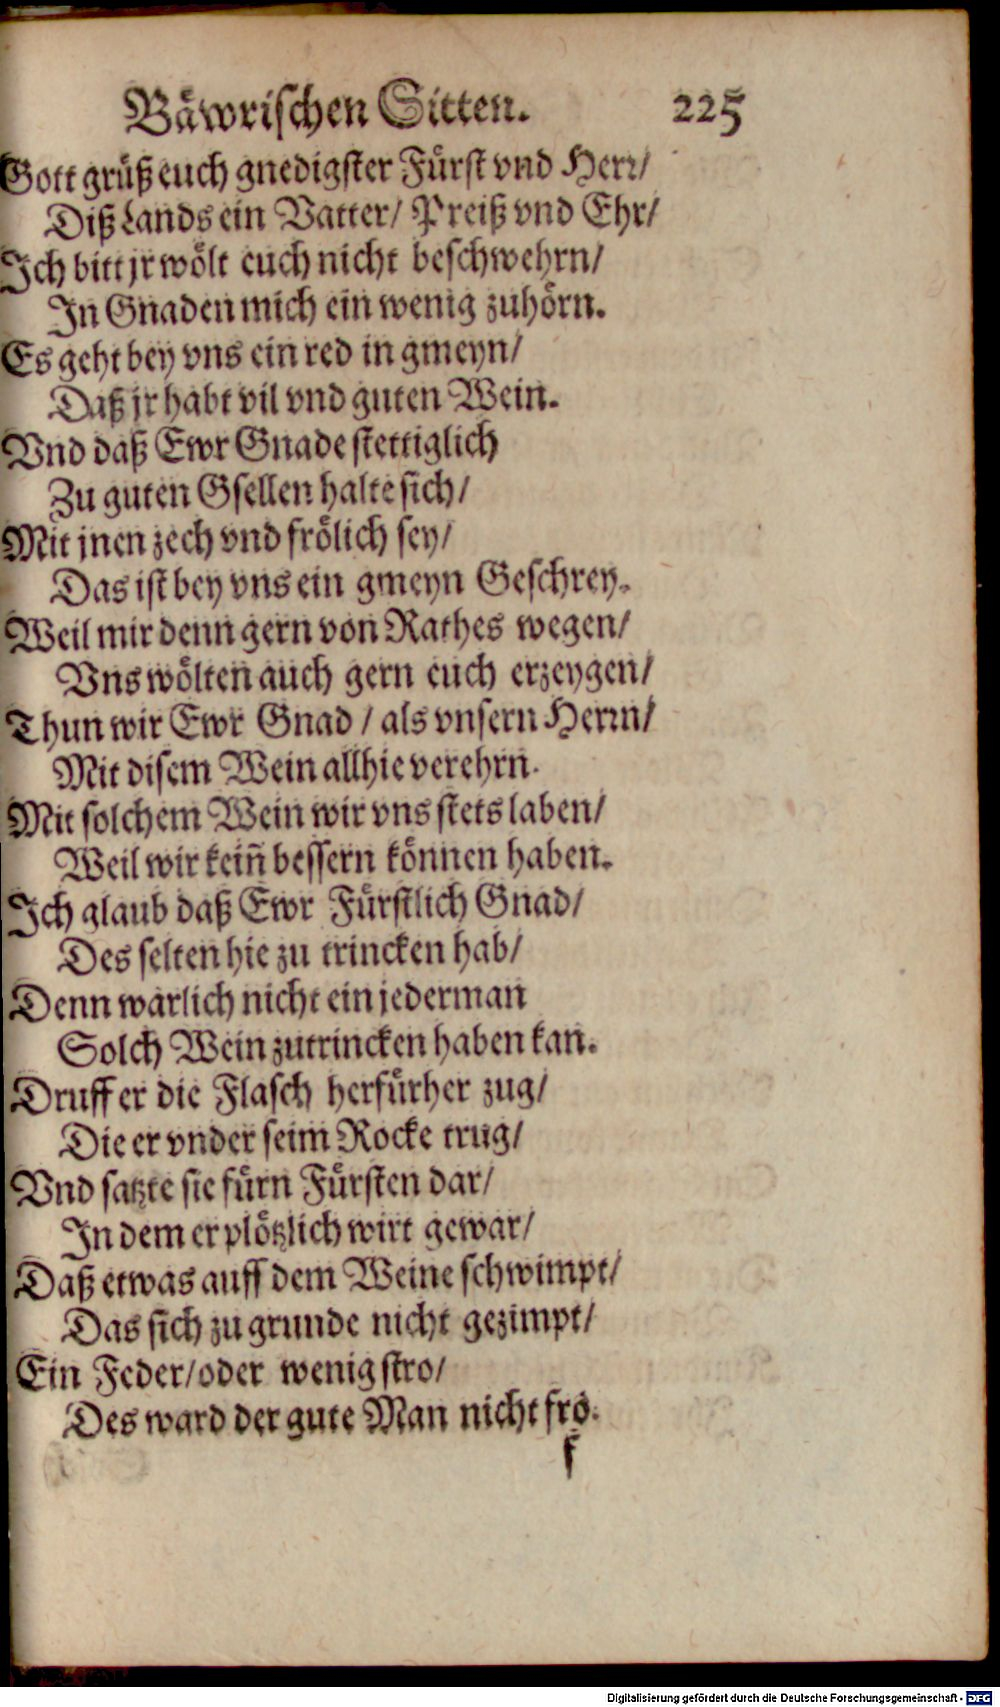 Bäwrischen Sitten. 225
Gott grüß euch gnedigster Fürst vnd Herr/
Diß Lands ein Vatter/ Preiß vnd Ehr/
Ich bitt jr wölt euch nicht beschwehrn/
In Gnaden mich ein wenig zuhörn.
Es geht bey vns ein red in gmeyn/
Daß jr habt vil vnd guten Wein.
Vnd daß Ewr Gnade stettiglich
Zu guten Gsellen halte sich/
Mit jnen zech vnd frölich sey/
Das ist bey vns ein gmeyn Geschrey.
Weil mir denn gern von Rathes wegen/
Vns wölten auch gern euch erzeygen/
Thun wir Ewr Gnad / als vnsern Herrn/
Mit disem Wein allhie verehrn.
Mit solchem Wein wir vns stets laben/
Weil wir keiñ bessern können haben.
Ich glaub daß Ewr Fürstlich Gnad/
Des selten hie zu trincken hab/
Denn warlich nicht ein jederman
Solch Wein zutrincken haben kan.
Druff er die Flasch herfürher zug/
Die er vnder seim Rocke trug/
Vnd satzte sie fürn Fürsten dar/
In dem er plötzlich wirt gewar/
Daß etwas auff dem Weine schwimpt/
Das sich zu grunde nicht gezimpt/
Ein Feder/oder wenig stro/
Des ward der gute Man nicht fro.
f
Digitalisierung gefördert durch die Deutsche Forschungsgemeinschaft - DFG